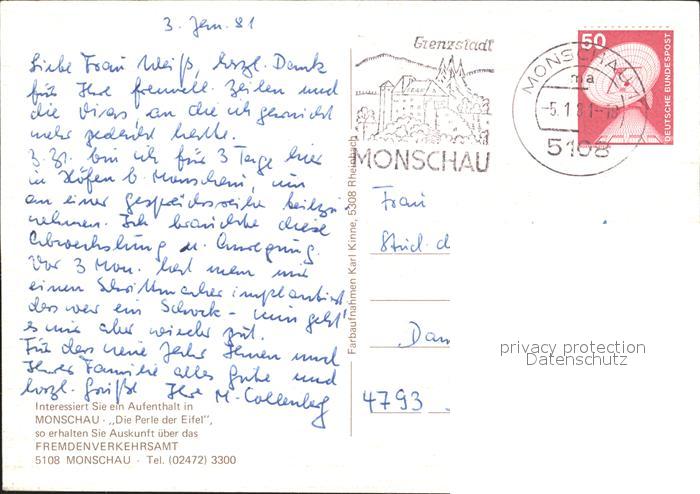 3. Jan. 81
Liebe Frau Weiß, herzl. Dank
für Ihre freundl. Zeilen und
die Vivas, an die ich gar nicht
mehr gedacht hatte.
Z. Zt. bin ich für 3 Tage hier
in Höfen b. Monschau, um
an einer Gesprächsreihe teilzu
nehmen. Ich brauchte diese
Abwechslung u. Anregung.
Vor 3 Mon. hat man mir
einen Schrittmacher implantiert
das war ein Schock - nun geht
es mir aber wieder gut.
Für das neue Jahr Ihnen und
Ihrer Familie alles Gute und
herzl. Grüße Ihre M. Collenberg
Interessiert Sie ein Aufenthalt in
MONSCHAU - „Die Perle der Eifel",
so erhalten Sie Auskunft über das
FREMDENVERKEHRSAMT
5108 MONSCHAU - Tel. (02472) 3300
Farbaufnahmen Karl Kinne, 5308 Rheinbach
Grenzstadt
MONSCHAU
MONSCHAU
ma
-5.1.81-
5108
50
DEUTSCHE BUNDESPOST
Frau
Stud. d
Dam
4793
privacy protection
Datenschutz